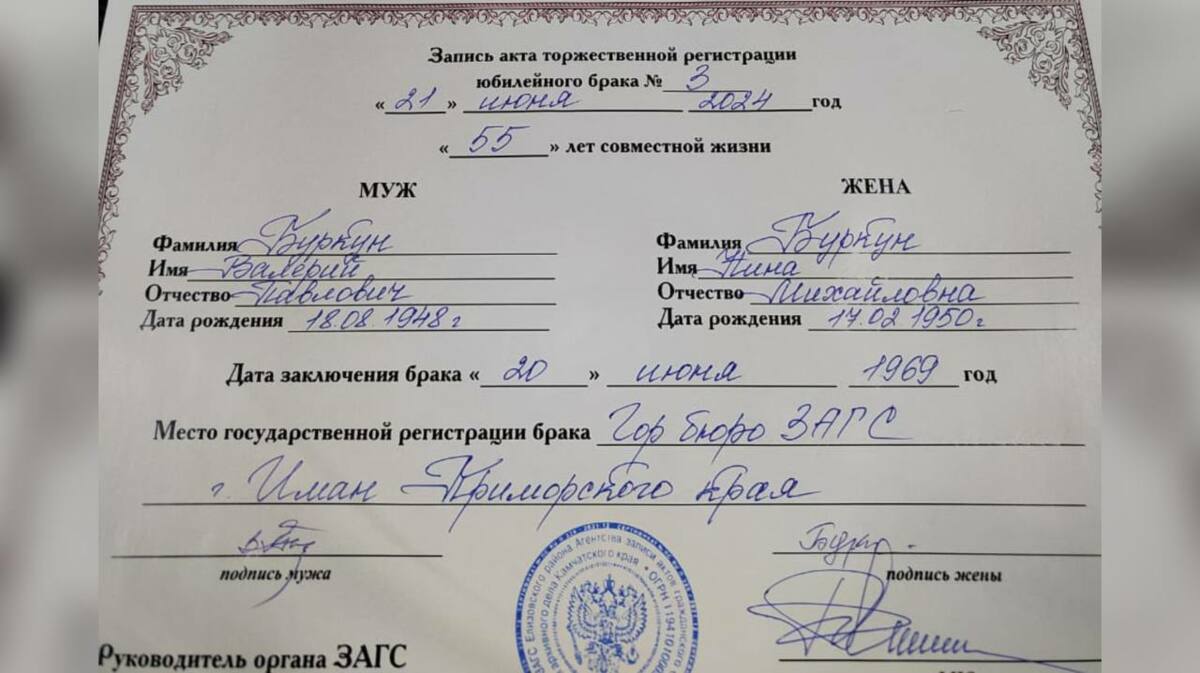 Запись акта торжественной регистрации
юбилейного брака № 3
« 21 » июня 2024 год
« 55 » лет совместной жизни
МУЖ
Фамилия Буркун
Имя Валерий
Отчество Павлович
Дата рождения 18.08.1948 г
ЖЕНА
Фамилия Буркун
Имя Нина
Отчество Михайловна
Дата рождения 17.02.1950 г
Дата заключения брака « 20 » июня 1969 год
Место государственной регистрации брака Гор бюро ЗАГС
г. Иман Приморского края
подпись мужа
подпись жены
ЗАГС Елизовского района Агентства записи актов гражданского
архивного дела Камчатского края • ОГРН
Руководитель органа ЗАГС